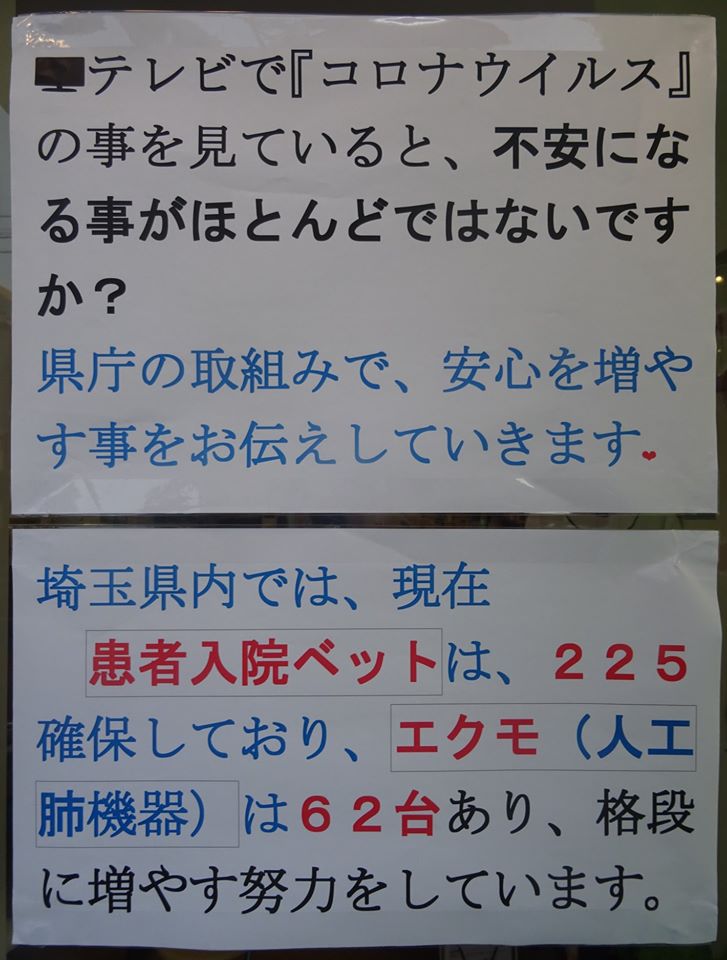 テレビで『コロナウイルス』
の事を見ていると、不安にな
る事がほとんどではないです
か？
県庁の取組みで、安心を増や
す事をお伝えしていきます❤
埼玉県内では、現在
患者入院ベットは、２２５
確保しており、エクモ（人工
肺機器）は６２台あり、格段
に増やす努力をしています。